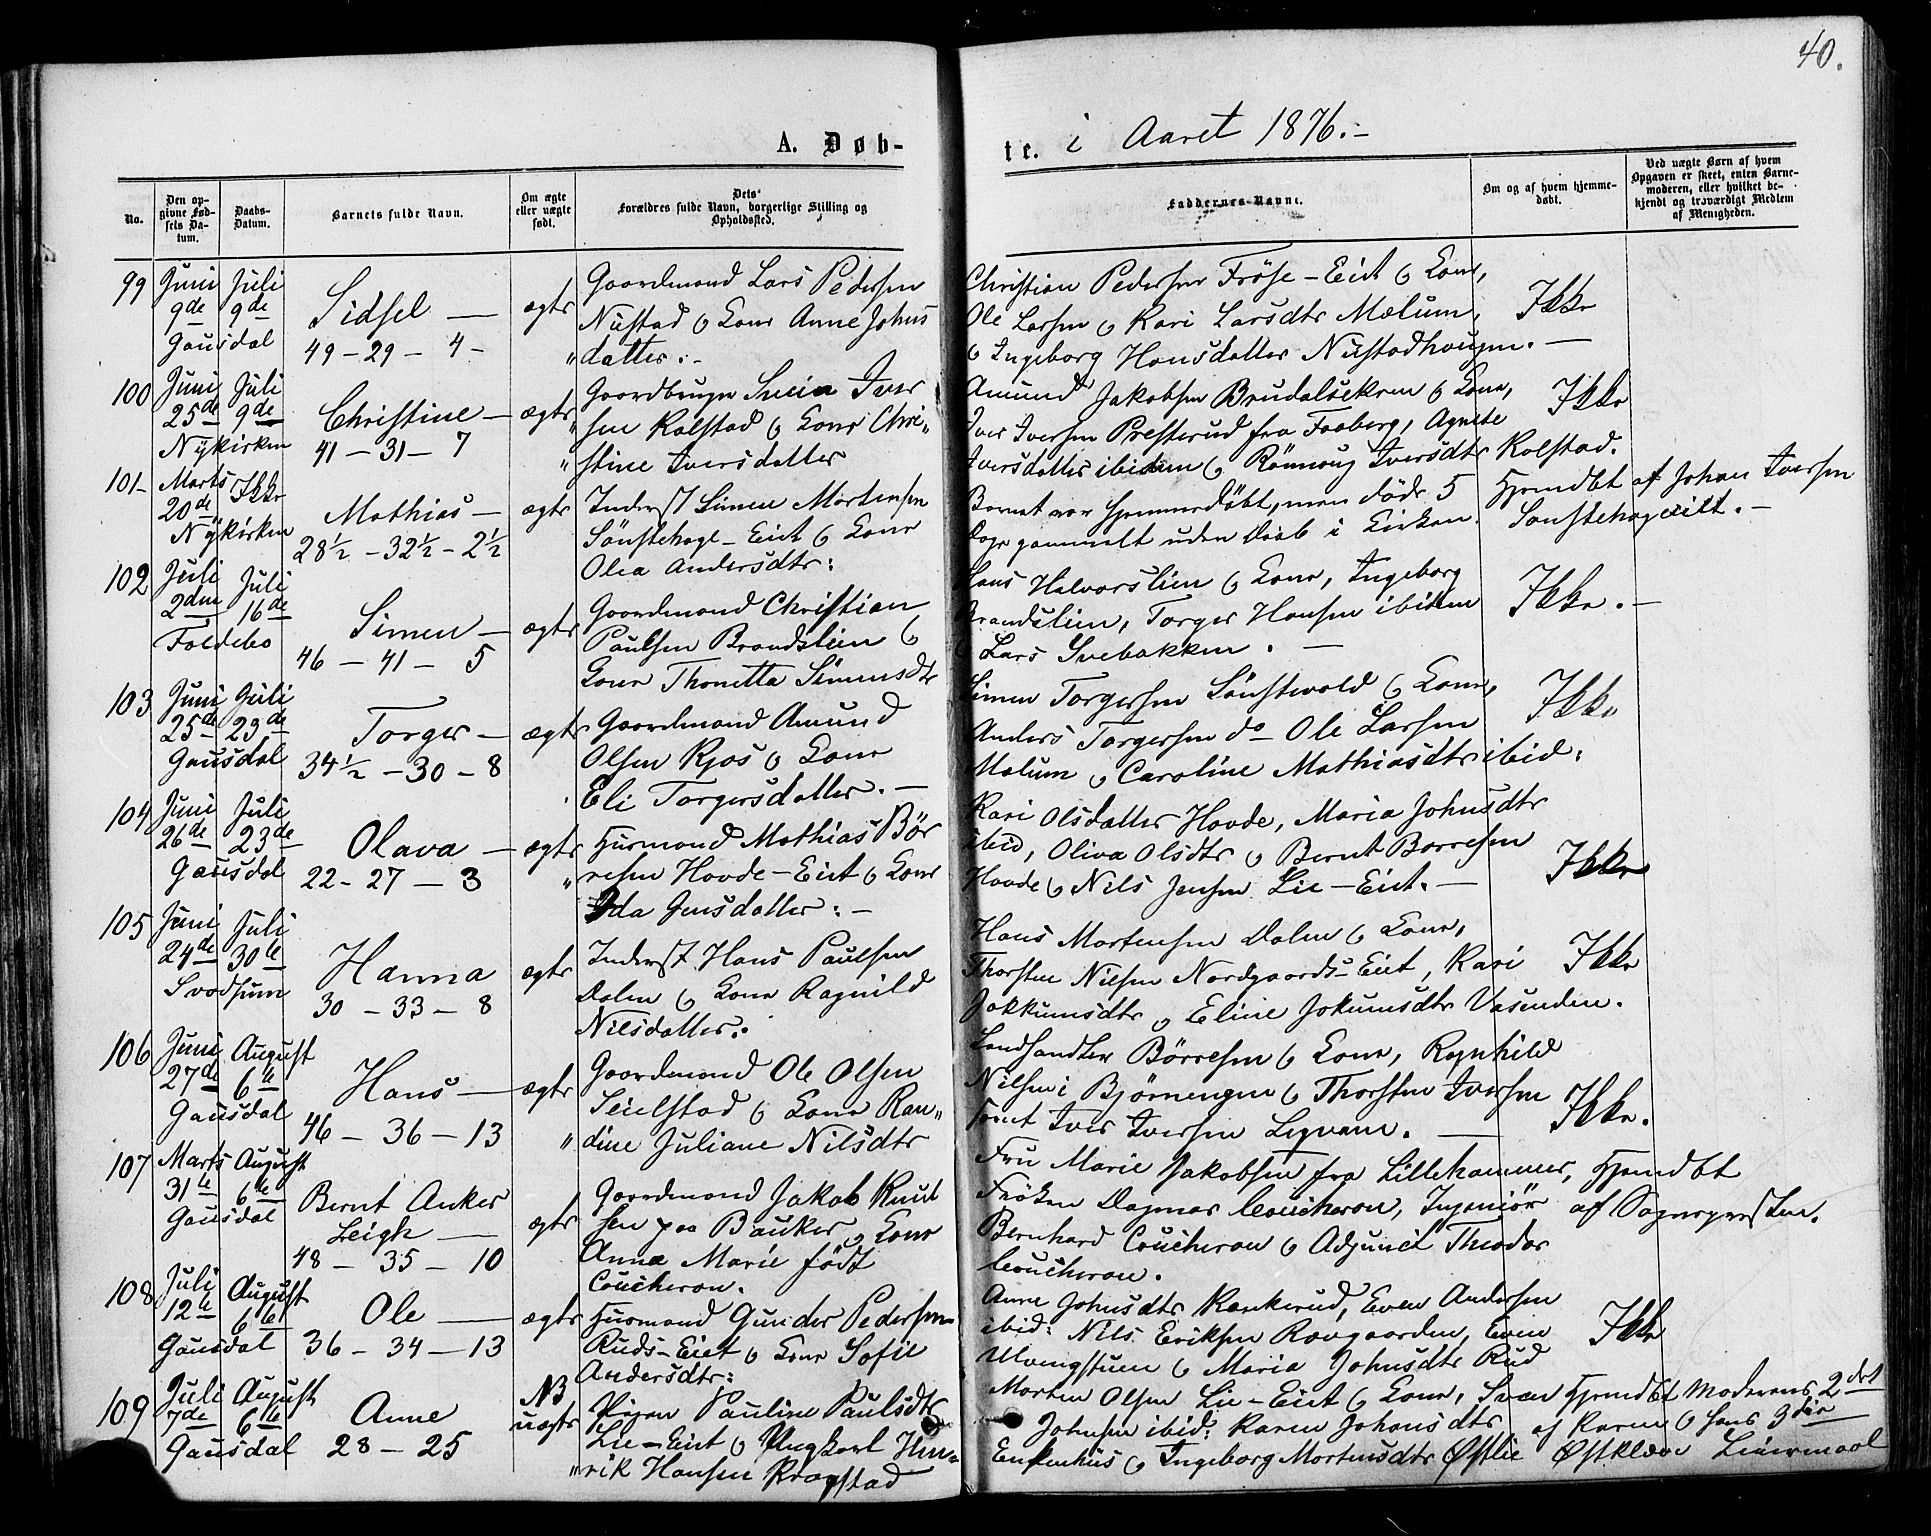 40.
A. Døb-
te. i Aaret 1876.-
No.
Den op-
givne Fød-
sels Da-
tum.
Daabs-
Datum.
Barnets fulde Navn.
Om ægte
eller uægte
født.
Dets
Forældres fulde Navn, borgerlige Stilling og
Opholdssted.
Faddernes Navne.
Om og af hvem hjemme-
døbt.
Ved uægte Børn af hvem
Opgaven er skeet, enten Barne-
moderen, eller hvilket be-
kjendt og troværdigt Medlem
af Menigheden.
99 Juni 9de Juli 9de Gausdal
Sidsel
49 - 29 - 4 -
ægte
Gaardmand Lars Pedersen
Nustad & Kone Anne Johns
"datter.-
Christian Pedersen Fröse-Eiet & Kone,
Ole Larsen & Kari Larsdtr Mælum,
& Ingeborg Hansdatter Nustadhaugen.-
Ikke
100 Juni 25de Juli 9de Nykirken
Christine
41 - 31 - 7
ægte
Gaardbruger Iver
"sen Kalstad & Kone Chri"
"stine Iversdatter
Amund Jakobsen & Kone,
Iver Iversen Presterud fra Faaberg, Agnete
Iversdatter ibidem & Rönnoug Iversdtr Kolstad.
Ikke
101- Marts 20de Ikke Nykirken
Mathias
28½ - 32½ - 2½
ægte
Inderst Simen Mortensen
Sönstehage-Eiet & Kone
Olea Andersdtr:
Barnet var hjemmedöbt, men döde 5
Dage gammelt uden Daab i Kirken.
Hjemdbt af Johan Iversen
102 Juli 2den Juli 16de Foldebo
Simen
46 - 41 - 5
ægte
Gaardmand Christian
Paulsen Brandslien &
Kone Thonetta Simensdtr
Hans Halvorslien & Kone, Ingeborg
Brandslien, Torger Hansen ibidem
& Lars Svebakken.-
Ikke.-
103 Juni 25de Juli 23de Gausdal
Torger
34½ - 30 - 8
ægte
Gaardmand Amund
Olsen Kjos & Kone
Eli Torgersdatter.-
Simen Torgersen Sönstevold & Kone,
Anders Torgersen do Ole Larsen
Mælum & Caroline Mathiasdtr ibid:
Ikke
104 Juni 26de Juli 23de Gausdal
Olava
22 - 27 - 3
ægte
Husmand Mathias Bör
"resen Hovde-Eiet & Kone
Ida Jensdatter:-
Kari Olsdatter Hovde, Maria Johnsdtr
ibid, Oliva Olsdtr & Bernt Borresen
Hovde & Nils Jensen Lie-Eiet.-
Ikke
105 Juni 24de Juli 30te Svodsum
Hanna
30 - 33 - 8
ægte
Inderst Hans Paulsen
Dalen & Kone Ragnild
Nilsdatter.
Hans Mortensen Dalen & Kone,
Thorsten Nilsen Nordgaards-Eiet, Kari
Jokkumsdtr & Eline Jokumsdtr Vasenden.
Ikke
106 Juni 27de August 6te Gausdal
Hans
46 - 36 - 13
ægte
Gaardmand Ole Olsen
Seielstad & Kone Ran"
"dine Juliane Nilsdtr
Landhandler Börresen & Kone, Ragnhild
Nilsen i Björnengen & Thorsten Iversen
samt Iver Iversen
Ikke.
107 Marts 31te August 6te Gausdal
Bernt Anker
Leigh
48 - 35 - 10
ægte
Gaardmand Jakob Knud
sen paa Bauker & Kone
Anna Marie födt
Coucheron.
Fru Marie Jakobsen fra Lillehammer,
Fröken Dagmar Coucheron, Ingeniör
Bernhard Coucheron & Adjunct Theodor
Coucheron.
Hjemdbt
af Sognepresten.
108 Juli 12te August 6te Gausdal
Ole
36 - 34 - 13
ægte
Husmand Gunder Pedersen
Ruds-Eiet & Kone Sofie
Andersdtr:
Anne Johnsdtr Kankerud, Even Andersen
ibid: Nils Eriksen Rovgaarden, Even
Ulvengstuen & Maria Johnsdtr Rud
Ikke
109 Juli 7de August 6te Gausdal
Anne
28 - 25
NB
uægte
Pigen Pauline Paulsdtr
Lie-Eiet & Ungkarl Hen-
"rik Hansen Kragstad
Morten Olsen Lie-Eiet & Kone, Svan
Johnsen ibid: Karen Johansdtr
& Ingeborg Mortensdtr Østlie
Hjemdbt
af Karen Østklæve
Moderens 2det
& hans 3die
Leiermaal